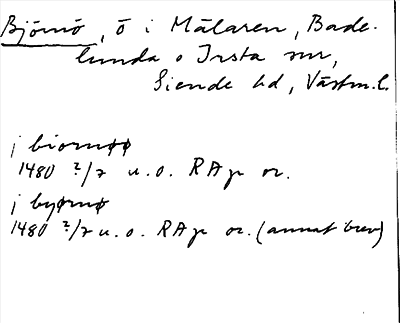 Björnö, ö i Mälaren, Bade-
lunda o Irsta snr,
Siende hd, Västm.l.
j biornøø
1480 2/7 u.o. RAp or.
j byørnø
1480 2/7 u.o. RAp or. (annat brev)